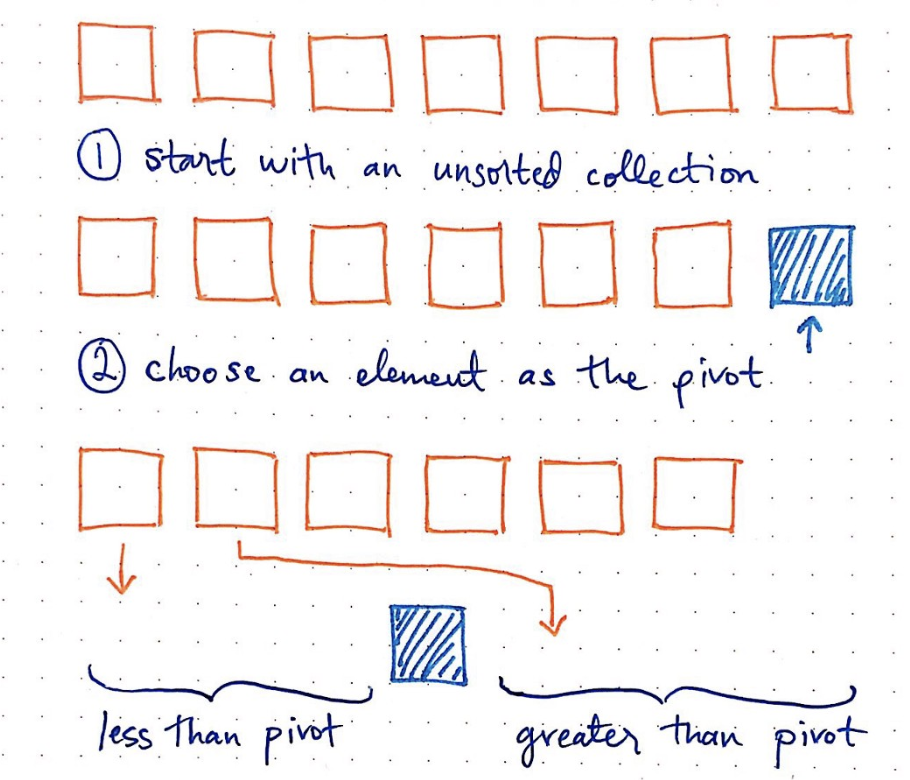 ① start with an unsorted collection
② choose an element as the pivot.
less than pivot
greater than pivot